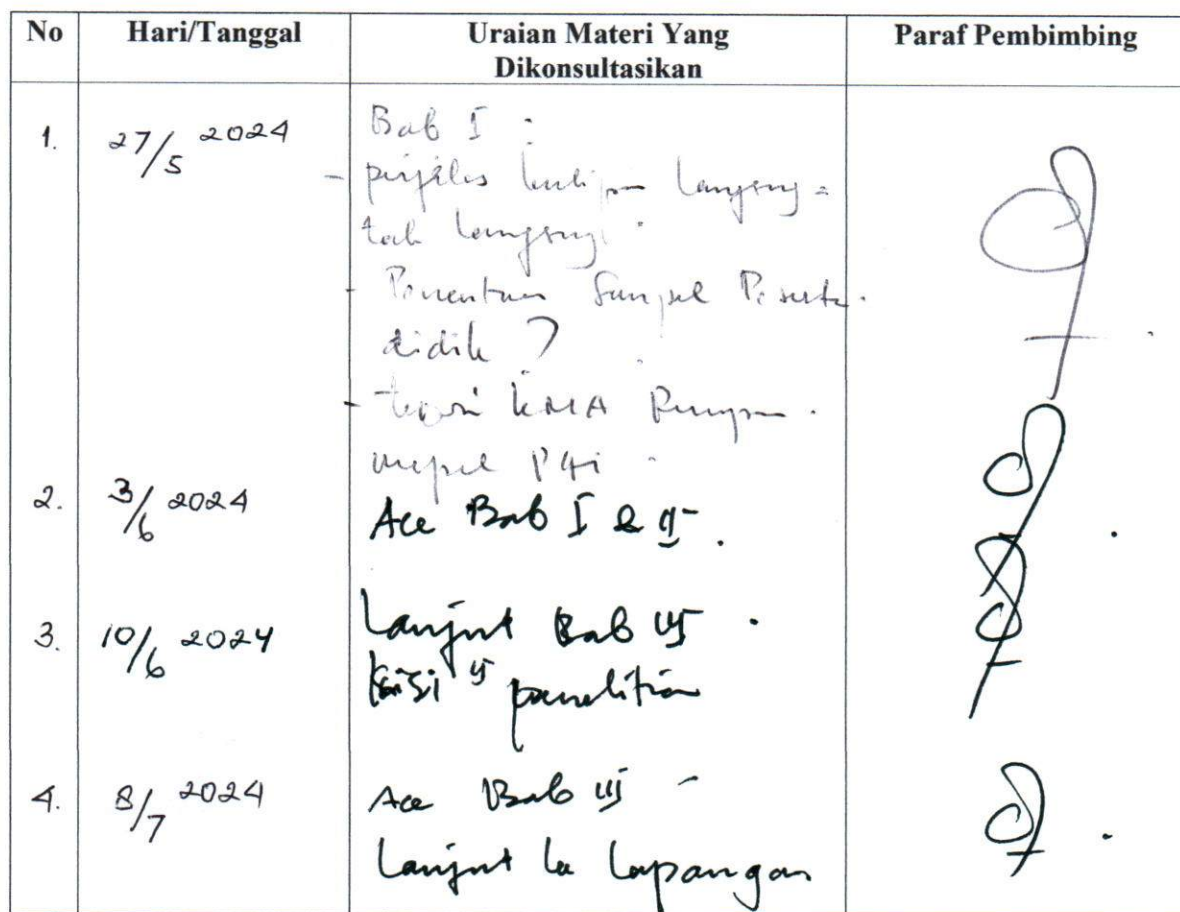 No Hari/Tanggal Uraian Materi Yang Dikonsultasikan Paraf Pembimbing
1. 27/5 2024 Bab I :
- perjelas kutipan langsung =
tak langsung.
- Penentuan Sampel Peserta
didik ?
- KMA
mapel
2. 3/6 2024 Acc Bab I & II.
3. 10/6 2024 Lanjut Bab III.
Kisi penelitian
4. 8/7 2024 Acc Bab III
Lanjut ke lapangan